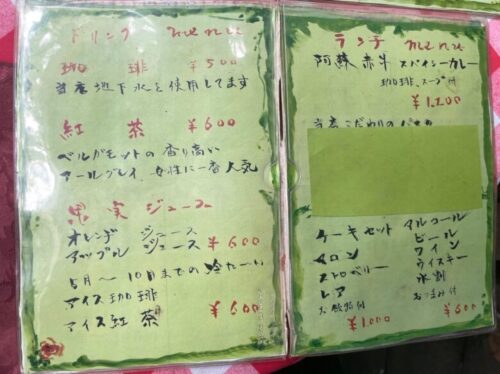 ドリンク menu
珈琲 ¥500
当店地下水を使用してます
紅茶 ¥600
ベルガモットの香り高い
アールグレイ 女性に一番人気
果実ジュース
オレンヂ ジュース
アップル ジュース ¥600
5月〜10月までの冷たーい
アイス珈琲
アイス紅茶 ¥600
ランチ menu
阿蘇赤牛 スパイシーカレー
珈琲、スープ付
¥1,200
当店こだわりの
ケーキセット
マロン
ストロベリー
レア
お飲物付
¥1000
アルコール
ビール
ワイン
ウイスキー
水割
おつまみ付
¥600